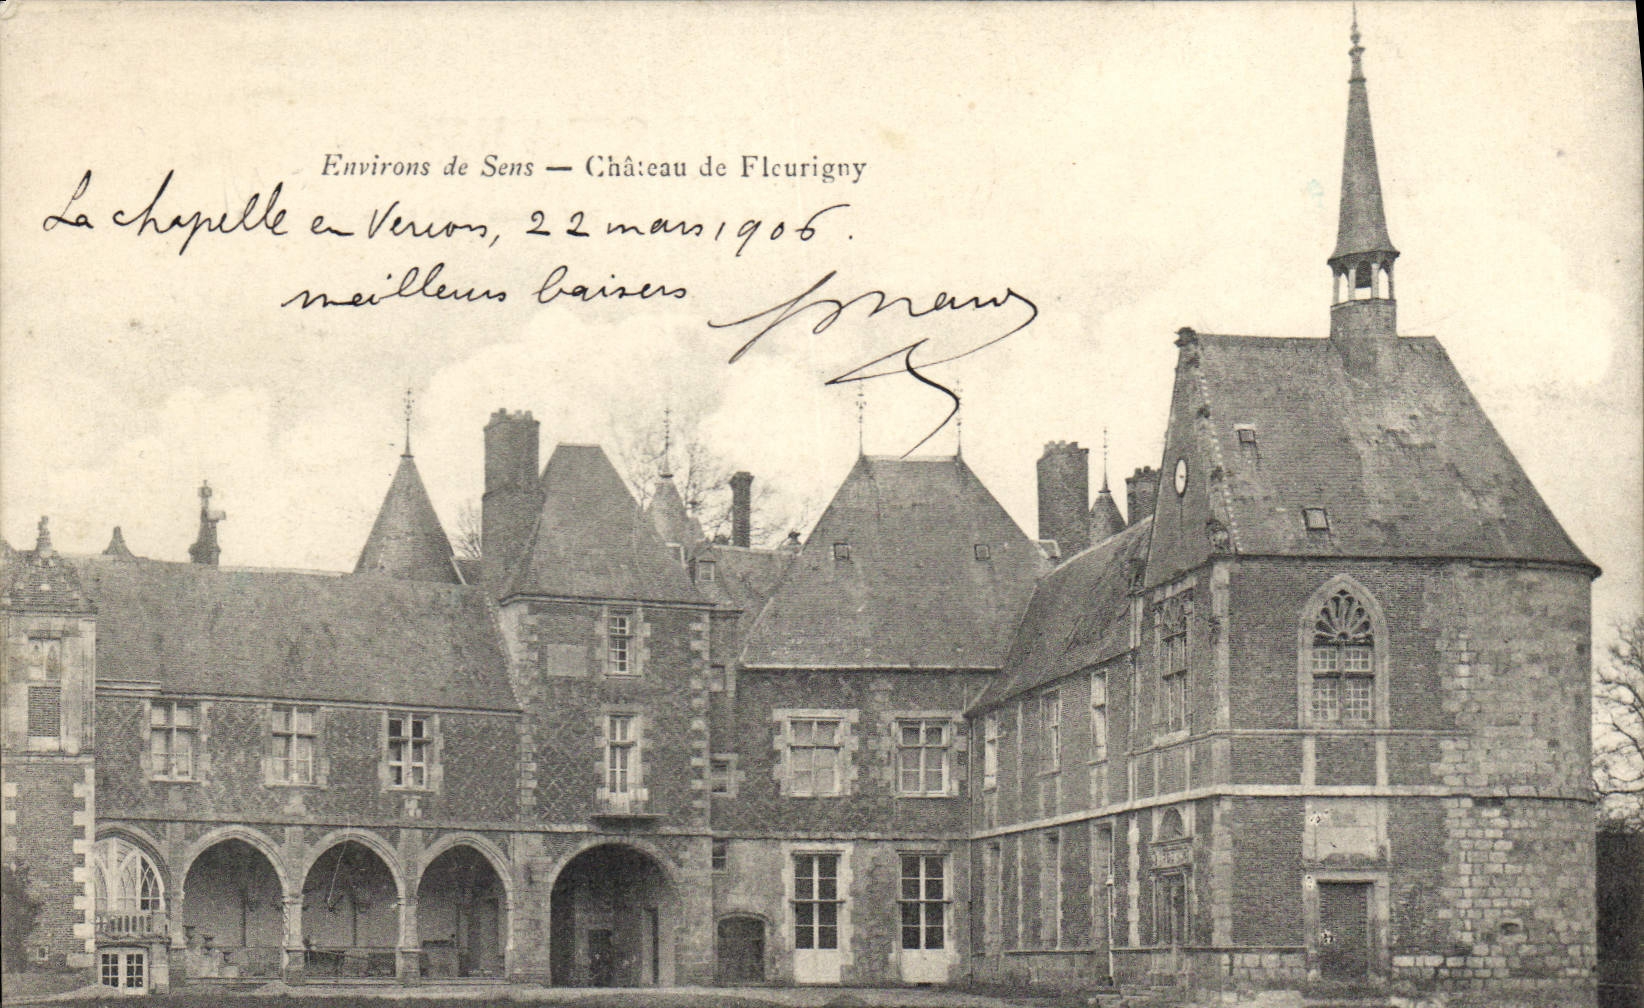 Environs de Sens — Château de Fleurigny
La chapelle en Vercors, 22 mars 1906.
meilleurs baisers